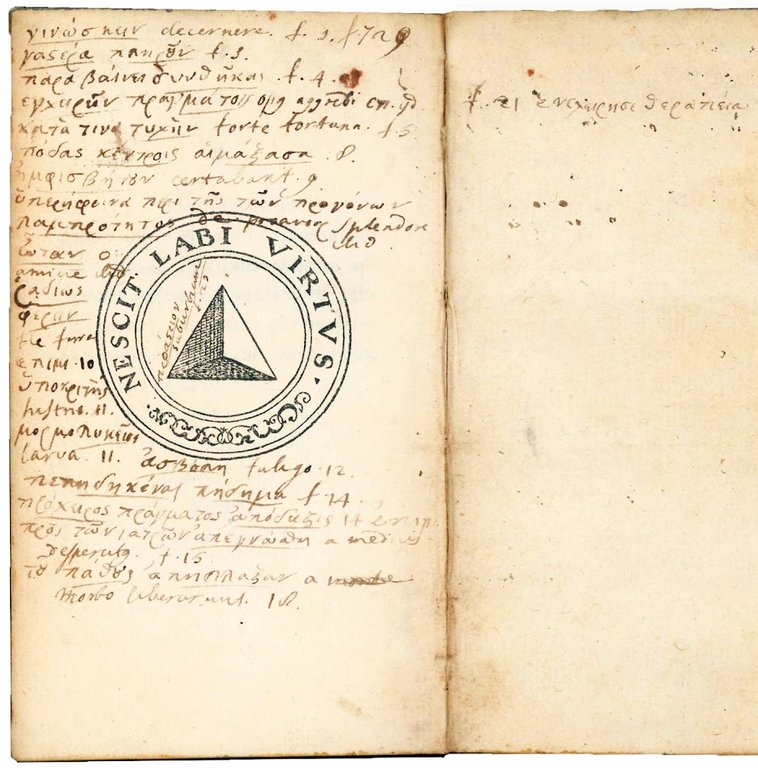 γινώσκειν decernere. f. 3. f729
γαστέρα πληροῦν f. 3.
παραβαίνει συνθήκας f. 4.
ἐγχειρεῖν πράγματοις aggredi
κατὰ τινα τυχὴν forte fortuna. f. 5
πόδας κέντροις αἱμάξασα 8.
ἠμφισβήτουν certabant. 9
ὑπερήφεινα περὶ τῆς τῶν προγόνων
λαμπρότητος de splendore
ibid.
ῥαδίως
φέρειν
10
ὑποκριτὴς
histrio. 11.
μορμολυκεῖον
larva. 11. ἀσβόλη fuligo. 12.
πεπηδηκέναι πήδημα f. 14.
πρόχειρος πράγματος ἀπόδειξις 14
πρὸς τῶν ἰατρῶν ἀπεγνώσθη a medicis
desperatus. f. 15.
τὸ πάθος ἀπήλλαξαν a morte
morbo liberarunt. 18.
NESCIT LABI VIRTVS.
suburbium
f. 21 ἐνεχείρησε θεραπεία